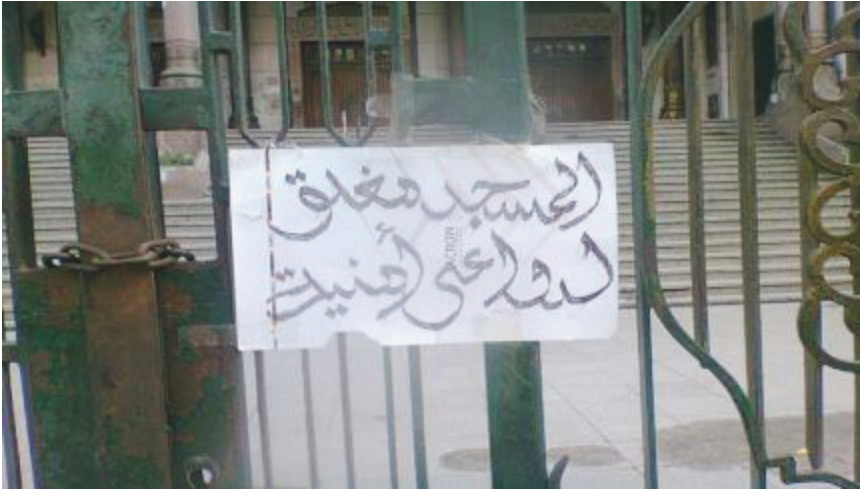 المسجد مغلق
لدواعى أمنية